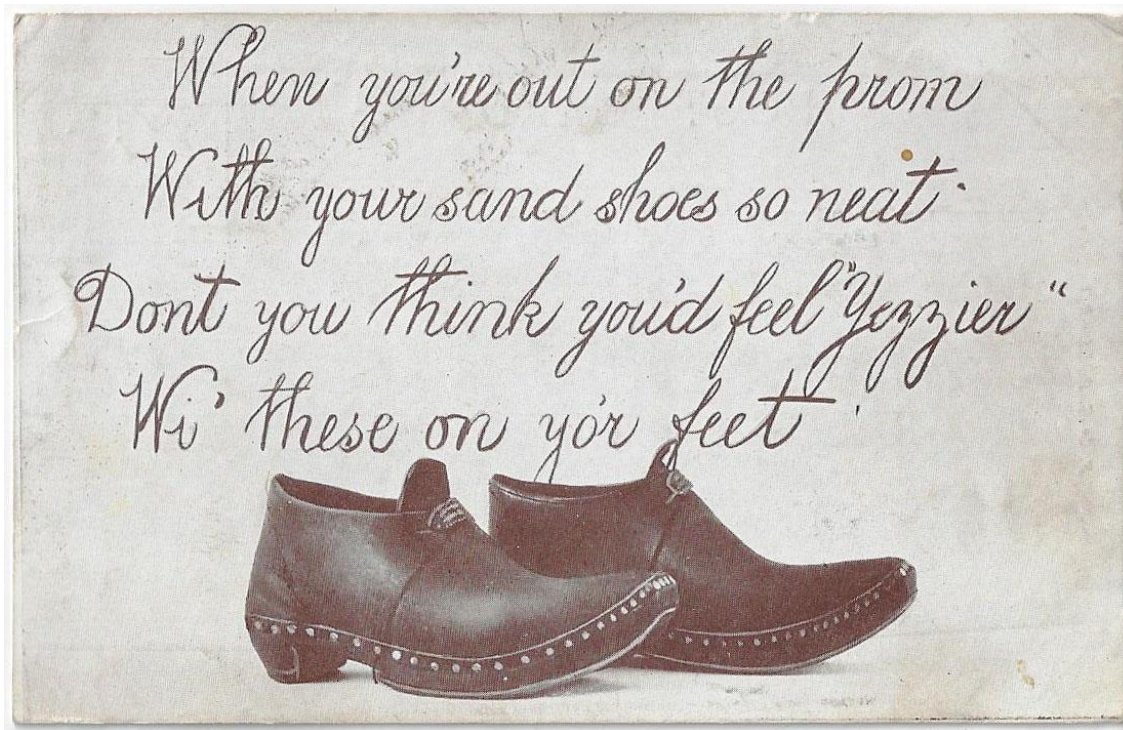 When you're out on the prom
With your sand shoes so neat.
Dont you think you'd feel "Yezzier"
Wi' these on yo'r feet